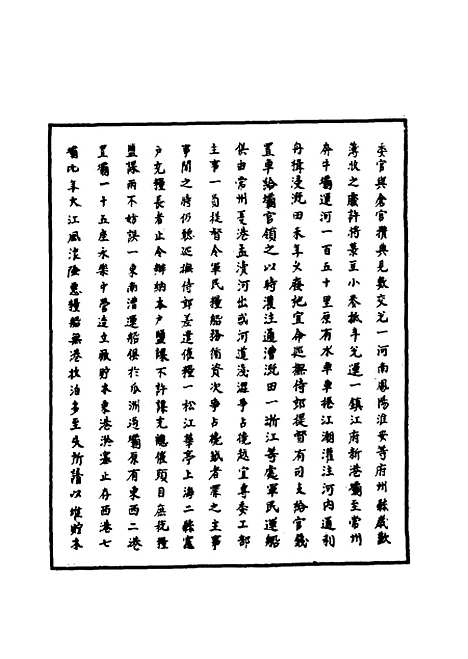 委官與倉官攢典見數交兌一河南鳳陽淮安等府州縣歲歉
薄收之處許將黃豆小麥抵斗兌運一鎮江府新港壩至常州
奔牛壩運河一百五十里原有水車車捲江潮灌注河内通利
舟楫浸溉田禾年久廢圯宜令巡撫侍郎提督有司支給官錢
置車給壩官領之以時灌注通漕溉田一浙江等處軍民運船
俱由常州夏港孟瀆河出或河道淺澀爭占攙越宜專委工部
主事一員提督令軍民糧船務循資次爭占攙越者罪之主事
事閒之時仍聽巡撫侍郎差遣催糧一松江華亭上海二縣竈
户充糧長者止令辦納本户鹽課不許課充總催頭目庶稅糧
鹽課兩不妨誤一東南漕運船俱於瓜洲過壩原有東西二港
置壩一十五座永樂中營造立廠貯木東港淤塞止存西港七
壩比年大江風浪險惡糧船無港收泊多至失所請以堆貯木